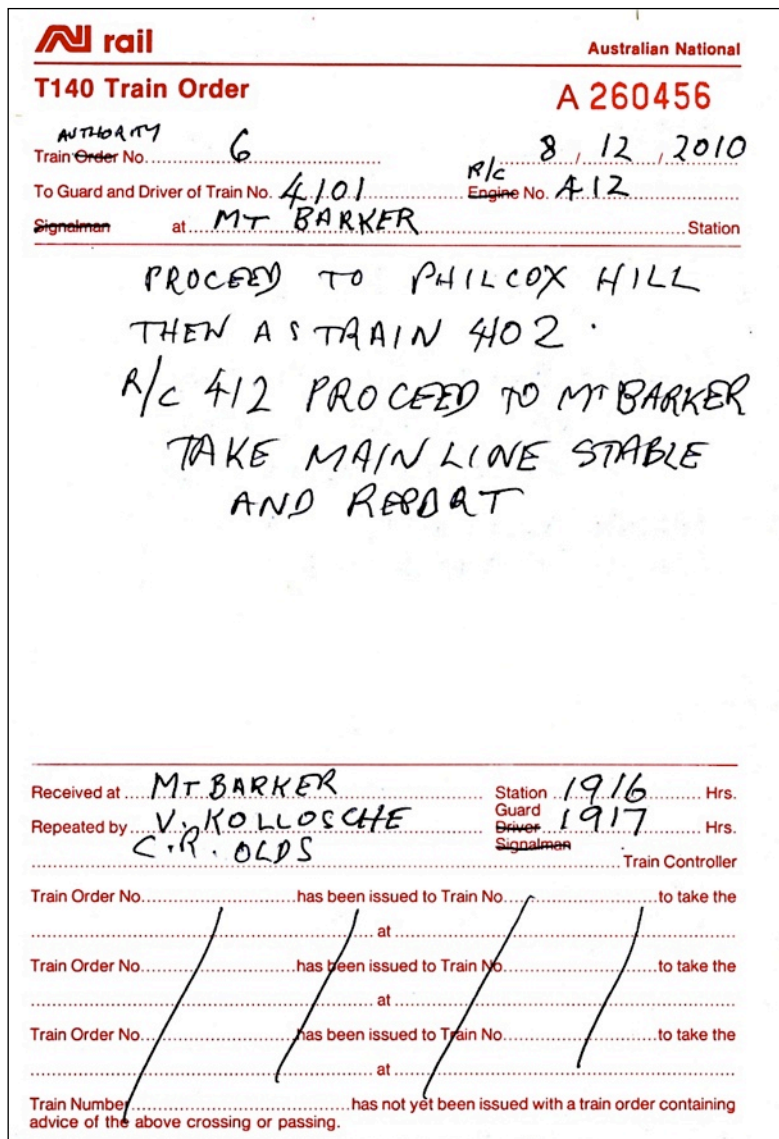 AN rail
Australian National
T140 Train Order
A 260456
AUTHORITY
Train Order No. 6 8 / 12 / 2010
R/C
To Guard and Driver of Train No. 4101 Engine No. 412
Signalman at MT BARKER Station
PROCEED TO PHILCOX HILL
THEN AS TRAIN 402.
R/C 412 PROCEED TO MT BARKER
TAKE MAIN LINE STABLE
AND REPORT
Received at MT BARKER Station 1916 Hrs.
Guard
Repeated by V. KOLLOSCHE Driver 1917 Hrs.
Signalman
C.R. OLDS Train Controller
Train Order No. has been issued to Train No. to take the
at
Train Order No. has been issued to Train No. to take the
at
Train Order No. has been issued to Train No. to take the
at
Train Number has not yet been issued with a train order containing
advice of the above crossing or passing.